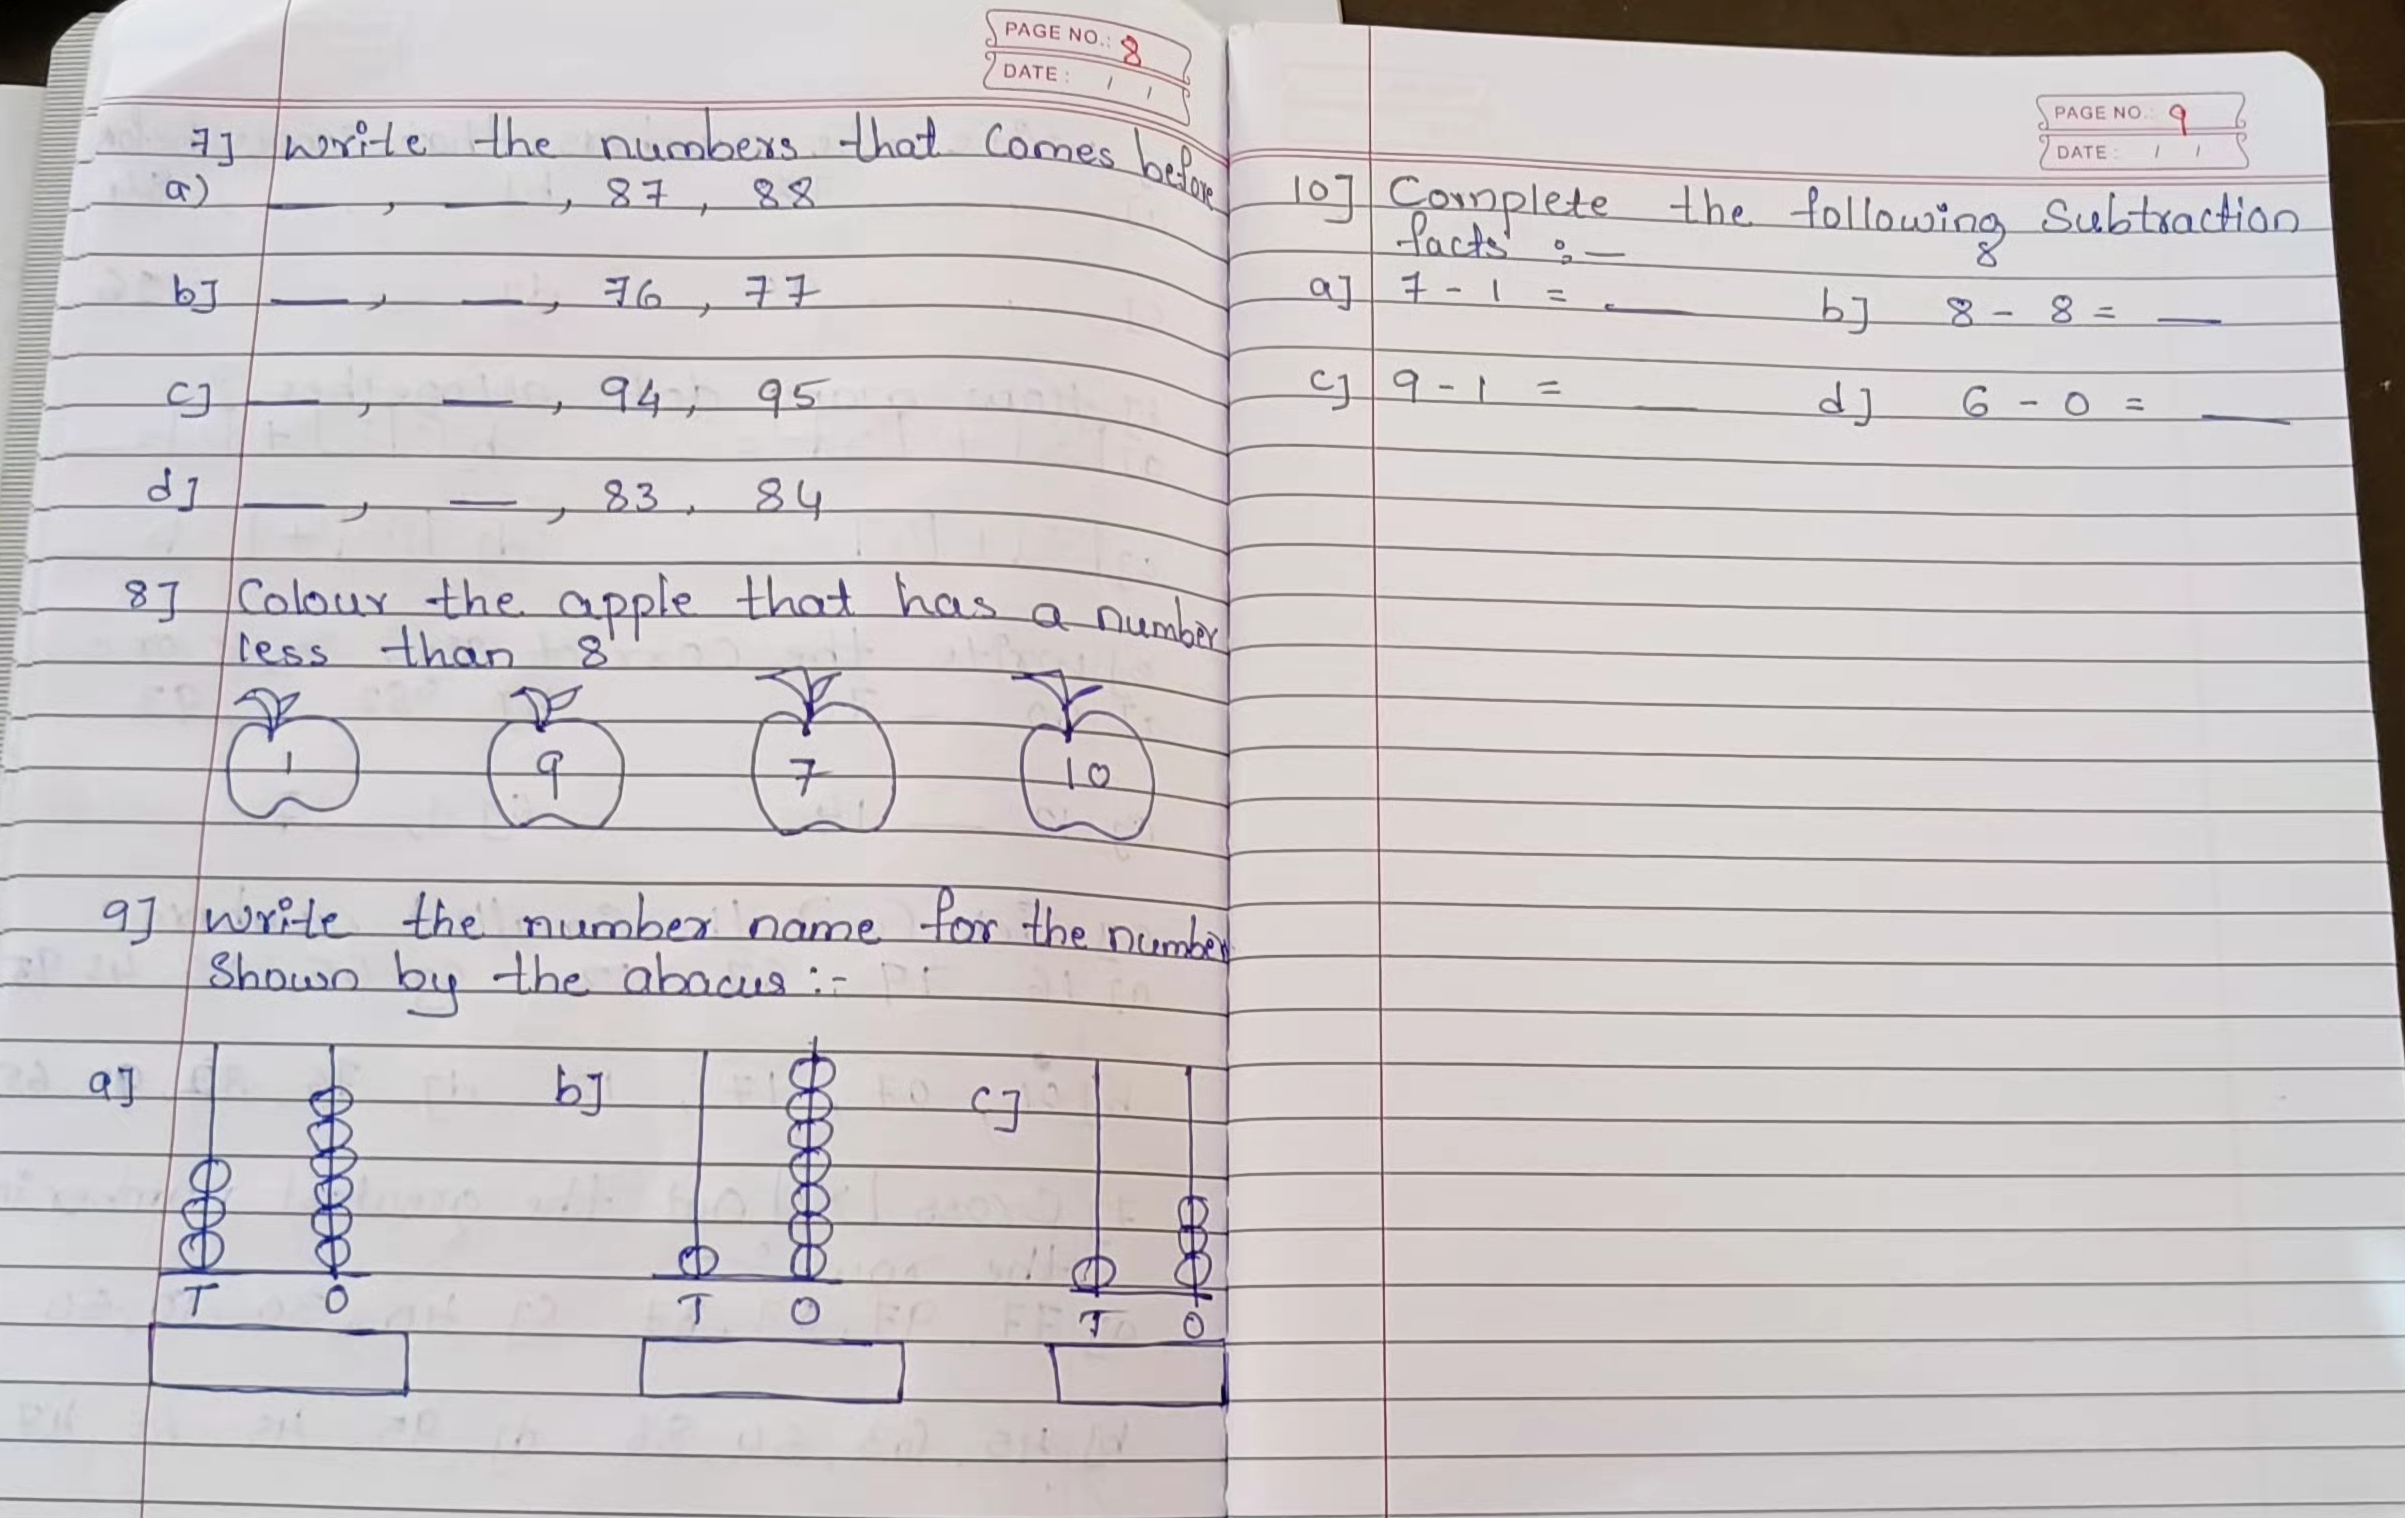 PAGE NO.: 8
DATE : / /
7] write the numbers that comes before
a) __, __, 87, 88
b] __, __, 76, 77
c] __, __, 94, 95
d] __, __, 83, 84
8] Colour the apple that has a number
less than 8
1 9 7 10
9] write the number name for the number
Shown by the abacus :-
a] b] c]
T O T O T O
PAGE NO.: 9
DATE : / /
10] Complete the following Subtraction
facts :-
8
a] 7 - 1 = __ b] 8 - 8 = __
c] 9 - 1 = __ d] 6 - 0 = __